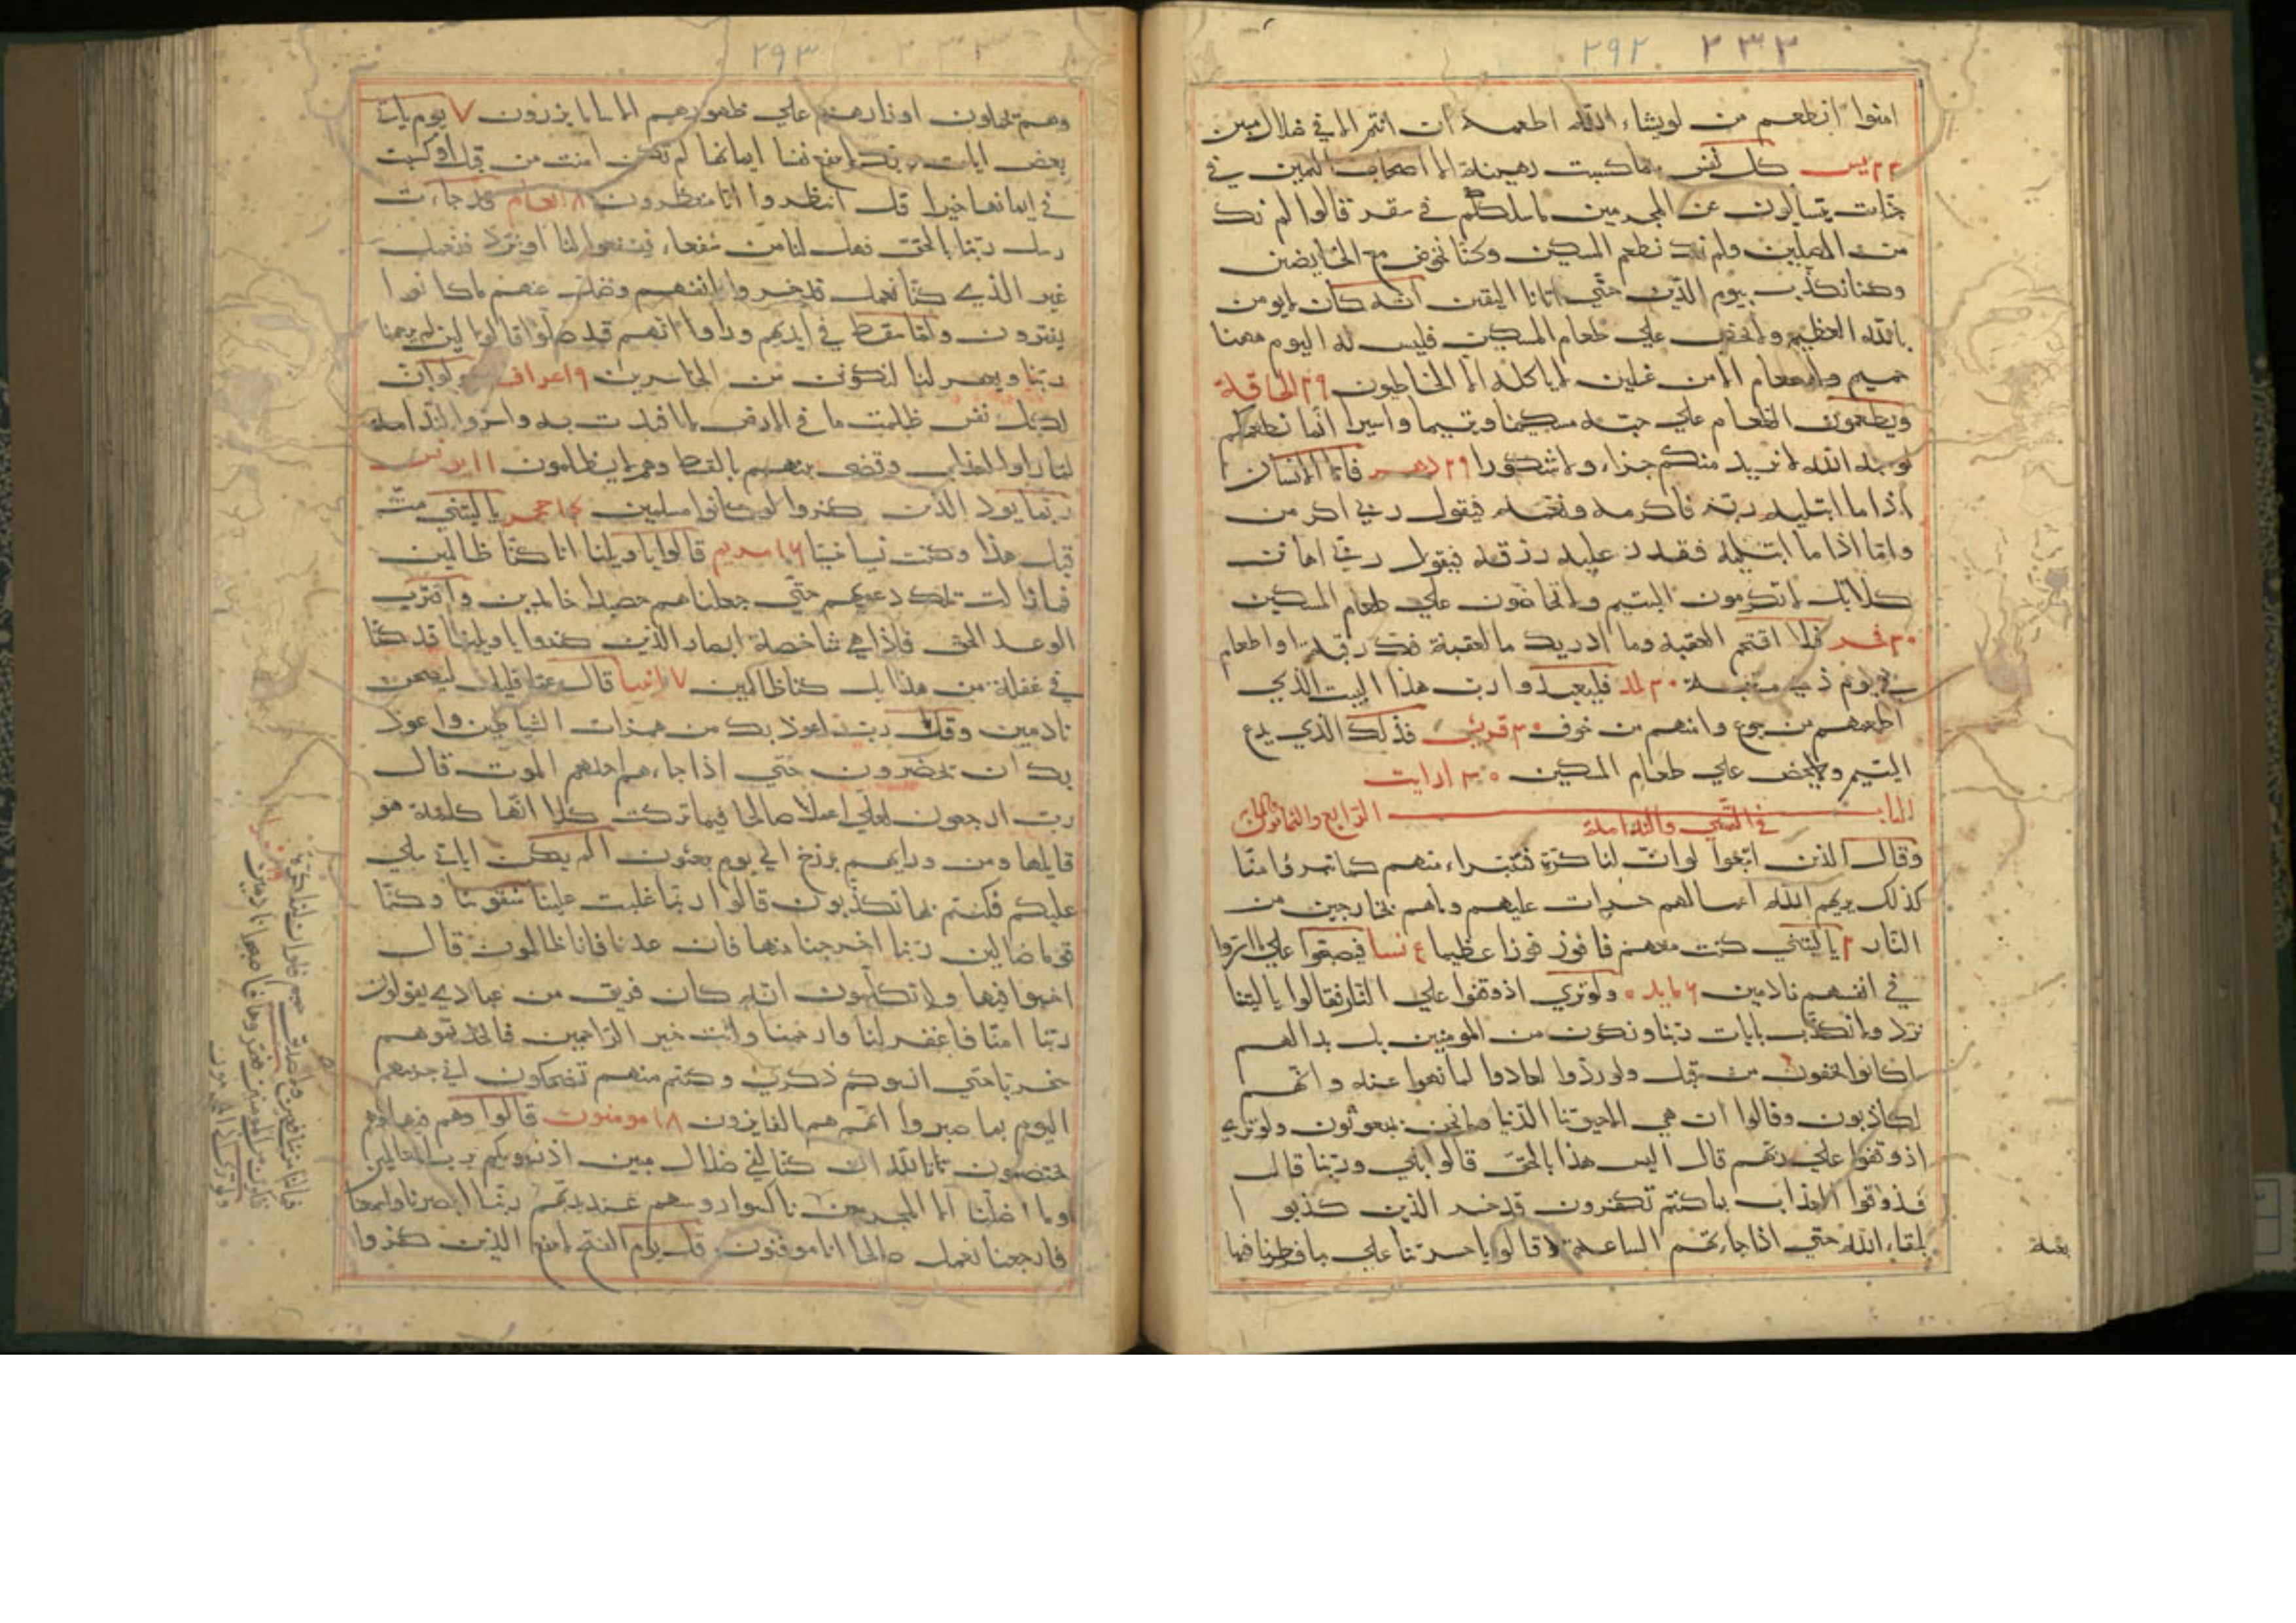 ٢٩٢ ٢٣٢
امنوا انطعم من لويشاء الله اطعمه ان انتم الا في ضلال مبين
٢٣ يس كل نفس بما كسبت رهينة الا اصحاب اليمين في
جنات يتسالون عن المجرمين ما سلككم في سقر قالوا لم نك
من المصلين ولم نك نطعم المسكين وكنا نخوض مع الخايضين
وكنا نكذب بيوم الدين حتي اتانا اليقين انه كان لايومن
بالله العظيم ولايحض علي طعام المسكين فليس له اليوم ههنا
حميم ولاطعام الا من غسلين لاياكله الا الخاطون ٢٩ الحاقة
ويطعمون الطعام علي حبه مسكينا ويتيما واسيرا انما نطعمكم
لوجه الله لانريد منكم جزاء ولاشكورا ٢٩ دهر فاما الانسان
اذا ما ابتليه ربه فاكرمه ونعمه فيقول ربي اكرمن
واما اذا ما ابتليه فقدر عليه رزقه فيقول ربي اهانن
كلا بل لاتكرمون اليتيم ولاتحاضون علي طعام المسكين
٣٠ فجر فلا اقتحم العقبة وما ادريك ما العقبة فك رقبة او اطعام
في يوم ذي مسغبة ٣٠ بلد فليعبدوا رب هذا البيت الذي
اطعمهم من جوع وامنهم من خوف ٣٠ قريش فذلك الذي يدع
اليتيم ولايحض علي طعام المسكين ٣٠ ارايت
الباب الرابع والثمانون
في التمني والندامة
وقال الذين اتبعوا لو ان لنا كرة فنتبراء منهم كما تبرؤا منا
كذلك يريهم الله اعمالهم حسرات عليهم وماهم بخارجين من
النار ٢ ياليتني كنت معهم فافوز فوزا عظيما ٤ نسا فيصبحوا علي مااسروا
في انفسهم نادمين ٦ مايده ولوتري اذ وقفوا علي النار فقالوا ياليتنا
نرد ولانكذب بايات ربنا ونكون من المومنين بل بدالهم
ماكانوا يخفون من قبل ولو ردوا لعادوا لما نهوا عنه وانهم
لكاذبون وقالوا ان هي الاحيوتنا الدنيا ومانحن بمبعوثون ولوتري
اذ وقفوا علي ربهم قال اليس هذا بالحق قالوا بلي وربنا قال
فذوقوا العذاب بماكنتم تكفرون قد خسر الذين كذبوا
بلقاء الله حتي اذا جاءتهم الساعة قالوا ياحسرتنا علي مافرطنا فيها
بغتة
٢٩٣ ٢٣٣
وهم يحملون اوزارهم علي ظهورهم الا ساء مايزرون ٧ يوم ياتي
بعض ايات ربك لاينفع نفسا ايمانها لم تكن امنت من قبل او كسبت
في ايمانها خيرا قل انتظروا انا منتظرون ٨ انعام قد جاءت
رسل ربنا بالحق فهل لنا من شفعاء فيشفعوا لنا او نرد فنعمل
غير الذي كنا نعمل قد خسروا انفسهم وضل عنهم ماكانوا
يفترون ولما سقط في ايديهم وراوا انهم قد ضلوا قالوا لين لم يرحمنا
ربنا ويغفر لنا لنكونن من الخاسرين ٩ اعراف ولو ان
لكل نفس ظلمت ما في الارض لافتدت به واسروا الندامة
لما راوا العذاب وقضي بينهم بالقسط وهم لايظلمون ١١ يونس
ربما يود الذين كفروا لو كانوا مسلمين ١٤ حجر ياليتني مت
قبل هذا وكنت نسيا منسيا ١٦ مريم قالوا ياويلنا انا كنا ظالمين
فما زالت تلك دعويهم حتي جعلناهم حصيدا خامدين واقترب
الوعد الحق فاذا هي شاخصة ابصار الذين كفروا ياويلنا قد كنا
في غفلة من هذا بل كنا ظالمين ١٧ انبيا قال عما قليل ليصبحن
نادمين وقل رب اعوذ بك من همزات الشياطين واعوذ
بك ان يحضرون حتي اذا جاء احدهم الموت قال
رب ارجعون لعلي اعمل صالحا فيما تركت كلا انها كلمة هو
قايلها ومن ورايهم برزخ الي يوم يبعثون الم يكن اياتي تتلي
عليكم فكنتم بها تكذبون قالوا ربنا غلبت علينا شقوتنا وكنا
قوما ضالين ربنا اخرجنا منها فان عدنا فانا ظالمون قال
اخسوا فيها ولاتكلمون انه كان فريق من عبادي يقولون
ربنا امنا فاغفر لنا وارحمنا وانت خير الراحمين فاتخذتموهم
سخريا حتي انسوكم ذكري وكنتم منهم تضحكون اني جزيتهم
اليوم بما صبروا انهم هم الفايزون ١٨ مومنون قالوا وهم فيها
يختصمون تالله ان كنا لفي ضلال مبين اذ نسويكم برب العالمين
وما اضلنا الا المجرمون ناكسوا روسهم عند ربهم ربنا ابصرنا وسمعنا
فارجعنا نعمل صالحا انا موقنون قل يوم الفتح لاينفع الذين كفروا
فمالنا من شافعين ولاصديق حميم فلو ان لنا كرة
فنكون من المومنين فعقروها فاصبحوا نادمين
ولوتري اذ المجرمون